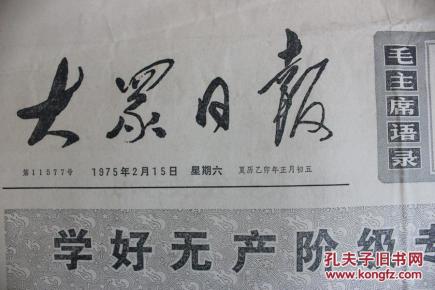 大众日报
毛主席语录
第11577号 1975年2月15日 星期六 夏历乙卯年正月初五
学好无产阶级专
孔夫子旧书网
www.kongfz.com